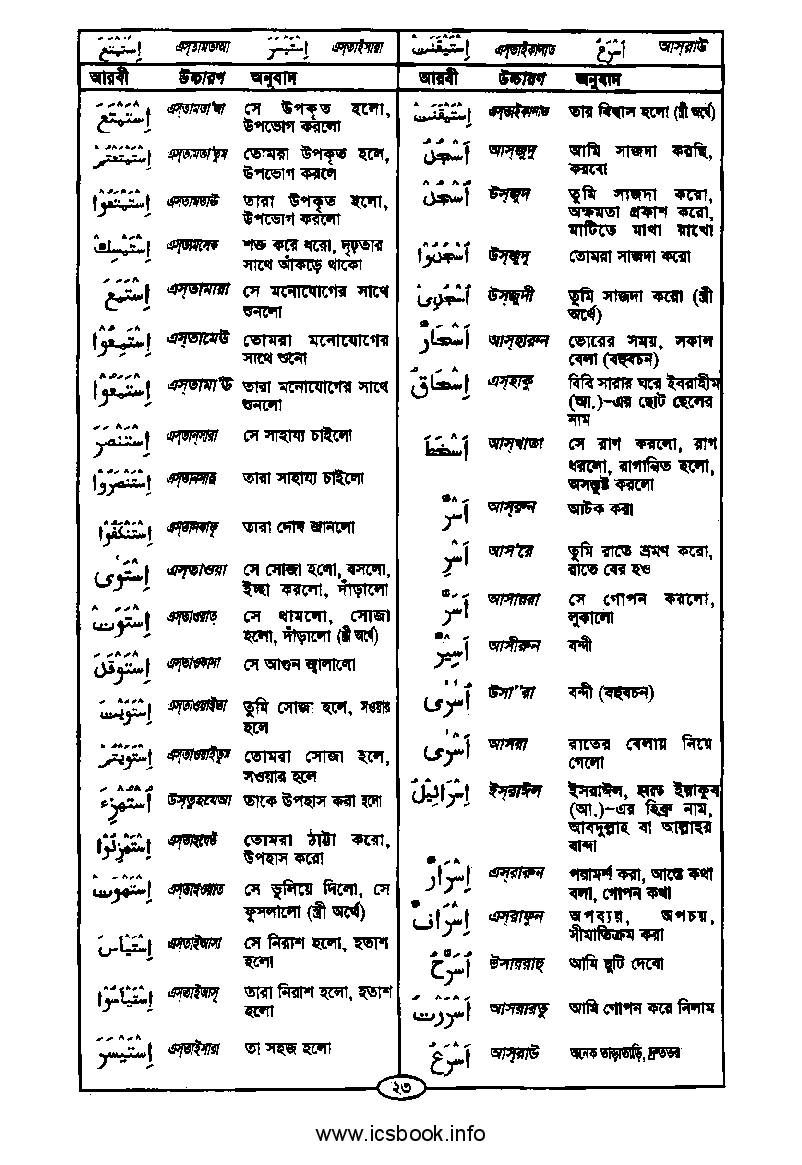 اِسْتَمْتَعَ এস্তামতাআ اِسْتَيْسَرَ এস্তাইসারা اِسْتَيْقَنَتْ এস্তাইকানাত اَسْرَعُ আস্রাউ
আরবী উচ্চারণ অনুবাদ
اِسْتَمْتَعَ এস্তামতা'আ সে উপকৃত হলো,
উপভোগ করলো
اِسْتَمْتَعْتُمْ এস্তামতা'তুম তোমরা উপকৃত হলে,
উপভোগ করলে
اِسْتَمْتَعُوْا এস্তামতাউ তারা উপকৃত হলো,
উপভোগ করলো
اِسْتَمْسِكْ এস্তামসেক শক্ত করে ধরো, দৃঢ়তার
সাথে আঁকড়ে থাকো
اِسْتَمَعَ এস্তামায়া সে মনোযোগের সাথে
শুনলো
اِسْتَمِعُوْا এস্তামেউ তোমরা মনোযোগের
সাথে শুনো
اِسْتَمَعُوْا এস্তামা'উ তারা মনোযোগের সাথে
শুনলো
اِسْتَنْصَرَ এস্তানসারা সে সাহায্য চাইলো
اِسْتَنْصَرُوْا এস্তানসারু তারা সাহায্য চাইলো
اِسْتَنْكَفُوْا এস্তানকাফু তারা দোষ জানলো
اِسْتَوٰى এস্তাওয়া সে সোজা হলো, বসলো,
ইচ্ছা করলো, দাঁড়ালো
اِسْتَوَتْ এস্তাওয়াত্ সে থামলো, সোজা
হলো, দাঁড়ালো (স্ত্রী অর্থে)
اِسْتَوْقَدَ এস্তাওকাদা সে আগুন জ্বালালো
اِسْتَوَيْتَ এস্তাওয়াইতা তুমি সোজা হলে, সওয়ার
হলে
اِسْتَوَيْتُمْ এস্তাওয়াইতুম তোমরা সোজা হলে,
সওয়ার হলে
اُسْتُهْزِءَ উস্তুহযেআ তাকে উপহাস করা হলো
اِسْتَهْزِئُوْا এস্তাহযেউ তোমরা ঠাট্টা করো,
উপহাস করো
اِسْتَهْوَتْ এস্তাহওয়াত সে ভুলিয়ে দিলো, সে
ফুসলালো (স্ত্রী অর্থে)
اِسْتَيْأَسَ এস্তাইআসা সে নিরাশ হলো, হতাশ
হলো
اِسْتَيْأَسُوْا এস্তাইআসু তারা নিরাশ হলো, হতাশ
হলো
اِسْتَيْسَرَ এস্তাইসারা তা সহজ হলো
আরবী উচ্চারণ অনুবাদ
اِسْتَيْقَنَتْ এস্তাইকানাত তার বিশ্বাস হলো (স্ত্রী অর্থে)
اَسْجُدُ আস্জুদু আমি সাজদা করছি,
করবো
اُسْجُدْ উস্জুদ তুমি সাজদা করো,
অক্ষমতা প্রকাশ করো,
মাটিতে মাথা রাখো
اُسْجُدُوْا উস্জুদু তোমরা সাজদা করো
اُسْجُدِىْ উস্জুদী তুমি সাজদা করো (স্ত্রী
অর্থে)
اَسْحَارٌ আস্হারুন ভোরের সময়, সকাল
বেলা (বহুবচন)
اِسْحَاقُ এস্হাকু বিবি সারার ঘরে ইবরাহীম
(আ.)-এর ছোট ছেলের
নাম
اَسْخَطَ আস্খাতা সে রাগ করলো, রাগ
ধরলো, রাগান্বিত হলো,
অসন্তুষ্ট করলো
اَسْرٌ আস্রুন আটক করা
اَسْرِ আস'রে তুমি রাতে ভ্রমণ করো,
রাতে বের হও
اَسَرَّ আসাররা সে গোপন করলো,
লুকালো
اَسِيْرٌ আসীরুন বন্দী
اُسٰرٰى উসা"রা বন্দী (বহুবচন)
اَسْرٰى আসরা রাতের বেলায় নিয়ে
গেলো
اِسْرَائِيْلُ ইস্রাঈল ইসরাঈল, হযরত ইয়াকুব
(আ.)-এর হিব্রু নাম,
আবদুল্লাহ বা আল্লাহর
বান্দা
اِسْرَارٌ এস্রারুন পরামর্শ করা, আস্তে কথা
বলা, গোপন কথা
اِسْرَافٌ এস্রাফুন অপব্যয়, অপচয়,
সীমাতিক্রম করা
اُسَرِّحُ উসাররাহু আমি ছুটি দেবো
اَسْرَرْتُ আসরারতু আমি গোপন করে নিলাম
اَسْرَعُ আস্রাউ অনেক তাড়াতাড়ি, দ্রুততর
২৩
www.icsbook.info